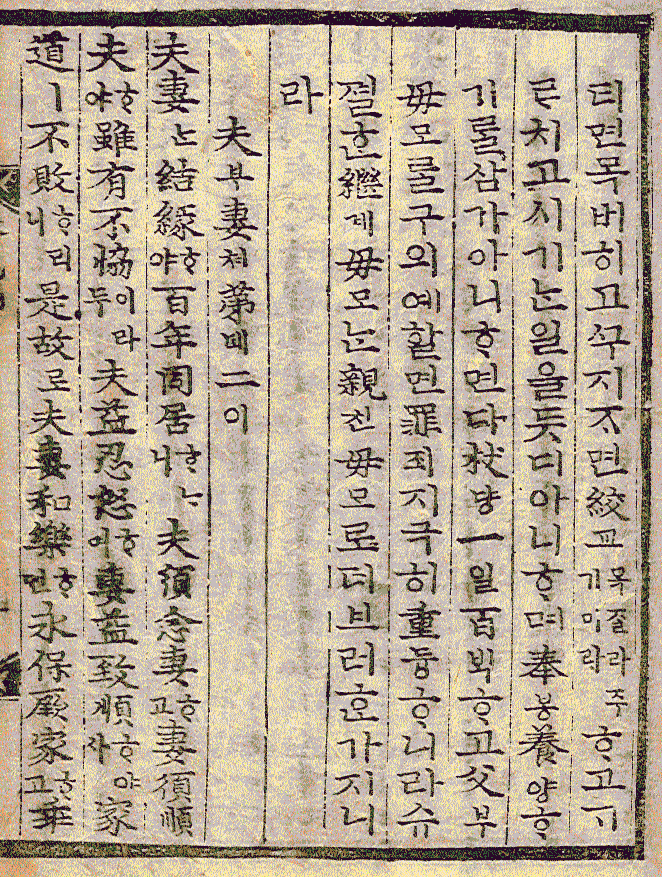 티면목버히고ᄭᅮ지즈면絞교목졸라주기미라ᄒᆞ고ᄀᆞ
ᄅᆞ치고시기ᄂᆞᆫ일을듯디아니ᄒᆞ며奉봉養양ᄒᆞ
기ᄅᆞᆯ삼가아니ᄒᆞ면다杖댱一일百ᄇᆡᆨᄒᆞ고父부
母모ᄅᆞᆯ구의예할면罪죄지극히重듕ᄒᆞ니라슈
졀ᄒᆞᆫ繼계母모ᄂᆞᆫ親친母모로더브러ᄒᆞᆫ가지니
라
夫부妻쳐第뎨二이
夫妻ᄂᆞᆫ結緣ᄒᆞ야百年同居ᄒᆞᄂᆞ니夫須念妻ᄒᆞ고妻須順
夫ᄒᆞ야雖有不協이라두夫益忍怒ᄒᆞ며妻益致順ᄒᆞ야사家
道ㅣ不敗ᄒᆞ리니是故로夫妻和樂ᄒᆞ면永保厥家ᄒᆞ고乖